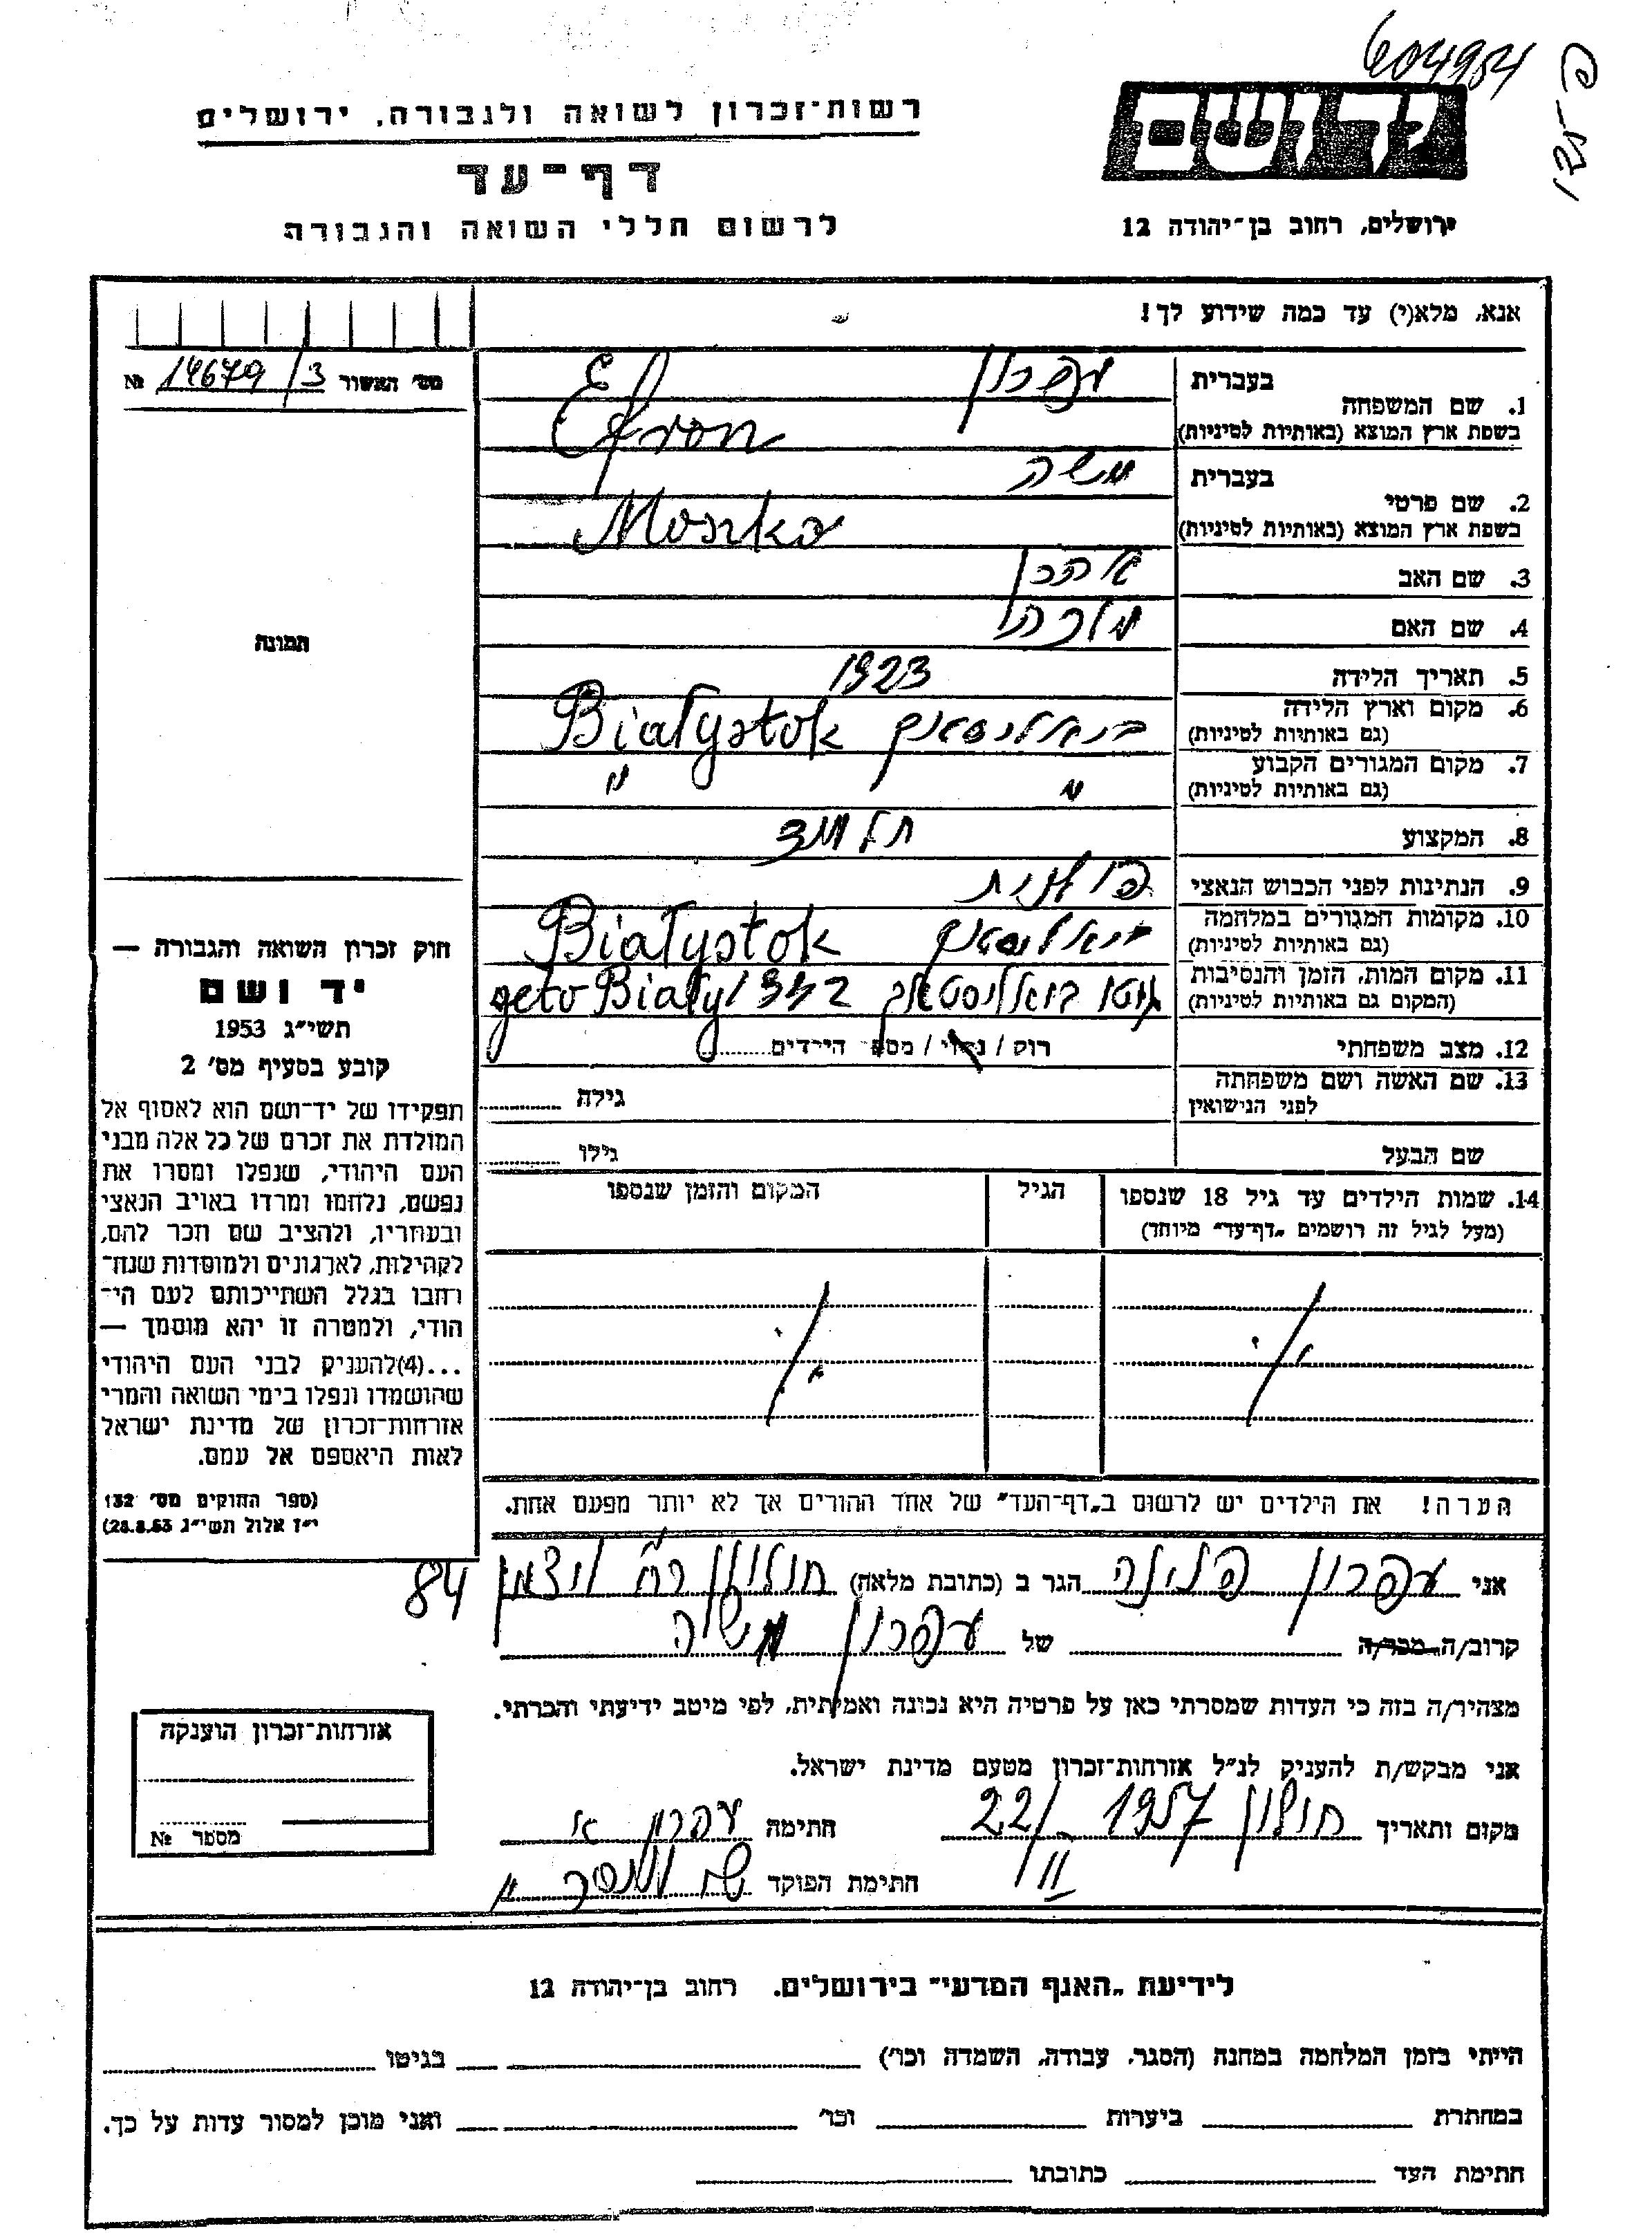 604954
רשות־זכרון לשואה ולגבורה, ירושלים
דף־עד
לרשום חללי השואה והגבורה
ידושם
ירושלים, רחוב בן־יהודה 12
אנא, מלא(י) עד כמה שידוע לך!
מס׳ האשור 14679/3 №
תמונה
1. שם המשפחה בעברית עפרון
בשפת ארץ המוצא (באותיות לטיניות) Efron
2. שם פרטי בעברית משה
בשפת ארץ המוצא (באותיות לטיניות) Moszko
3. שם האב אהרן
4. שם האם מלכה
5. תאריך הלידה 1923
6. מקום וארץ הלידה (גם באותיות לטיניות) ביאליסטוק Białystok
7. מקום המגורים הקבוע (גם באותיות לטיניות) " "
8. המקצוע תלמיד
9. הנתינות לפני הכבוש הנאצי פולנית
10. מקומות המגורים במלחמה (גם באותיות לטיניות) ביאליסטוק Białystok
11. מקום המות, הזמן והנסיבות (המקום גם באותיות לטיניות) גטו ביאליסטוק 1942 geto Biały
12. מצב משפחתי רוק / נשוי / מספר הילדים
13. שם האשה ושם משפחתה לפני הנישואין גילה
שם הבעל גילו
14. שמות הילדים עד גיל 18 שנספו הגיל המקום והזמן שנספו
(מעל לגיל זה רושמים „דף־עד״ מיוחד)
הערה! את הילדים יש לרשום ב„דף־העד״ של אחד ההורים אך לא יותר מפעם אחת.
חוק זכרון השואה והגבורה —
יד ושם
תשי״ג 1953
קובע בסעיף מס׳ 2
תפקידו של יד־ושם הוא לאסוף אל
המולדת את זכרם של כל אלה מבני
העם היהודי, שנפלו ומסרו את
נפשם, נלחמו ומרדו באויב הנאצי
ובעוזריו, ולהציב שם וזכר להם,
לקהילות, לארגונים ולמוסדות שנח־
רחבו בגלל השתייכותם לעם הי־
הודי, ולמטרה זו יהא מוסמך —
...(4)להעניק לבני העם היהודי
שהושמדו ונפלו בימי השואה והמרי
אזרחות־זכרון של מדינת ישראל
לאות היאספם אל עמם.
(ספר החוקים מס׳ 132
י״ז אלול תשי״ג 28.8.53)
אני עפרון הגר ב (כתובת מלאה) חולון רח׳ ויצמן 84
קרוב/ה מכר/ה של עפרון משה
מצהיר/ה בזה כי העדות שמסרתי כאן על פרטיה היא נכונה ואמיתית, לפי מיטב ידיעתי והכרתי.
אני מבקש/ת להעניק לנ״ל אזרחות־זכרון מטעם מדינת ישראל.
מקום ותאריך חולון 1957 22/II חתימה עפרון
חתימת הפוקד
אזרחות־זכרון הוענקה
מספר №
לידיעת „האגף המדעי״ בירושלים. רחוב בן־יהודה 12
הייתי בזמן המלחמה במחנה (הסגר, עבודה, השמדה וכו׳) בגיטו
במחתרת ביערות וכו׳ ואני מוכן למסור עדות על כך.
חתימת העד כתובתו